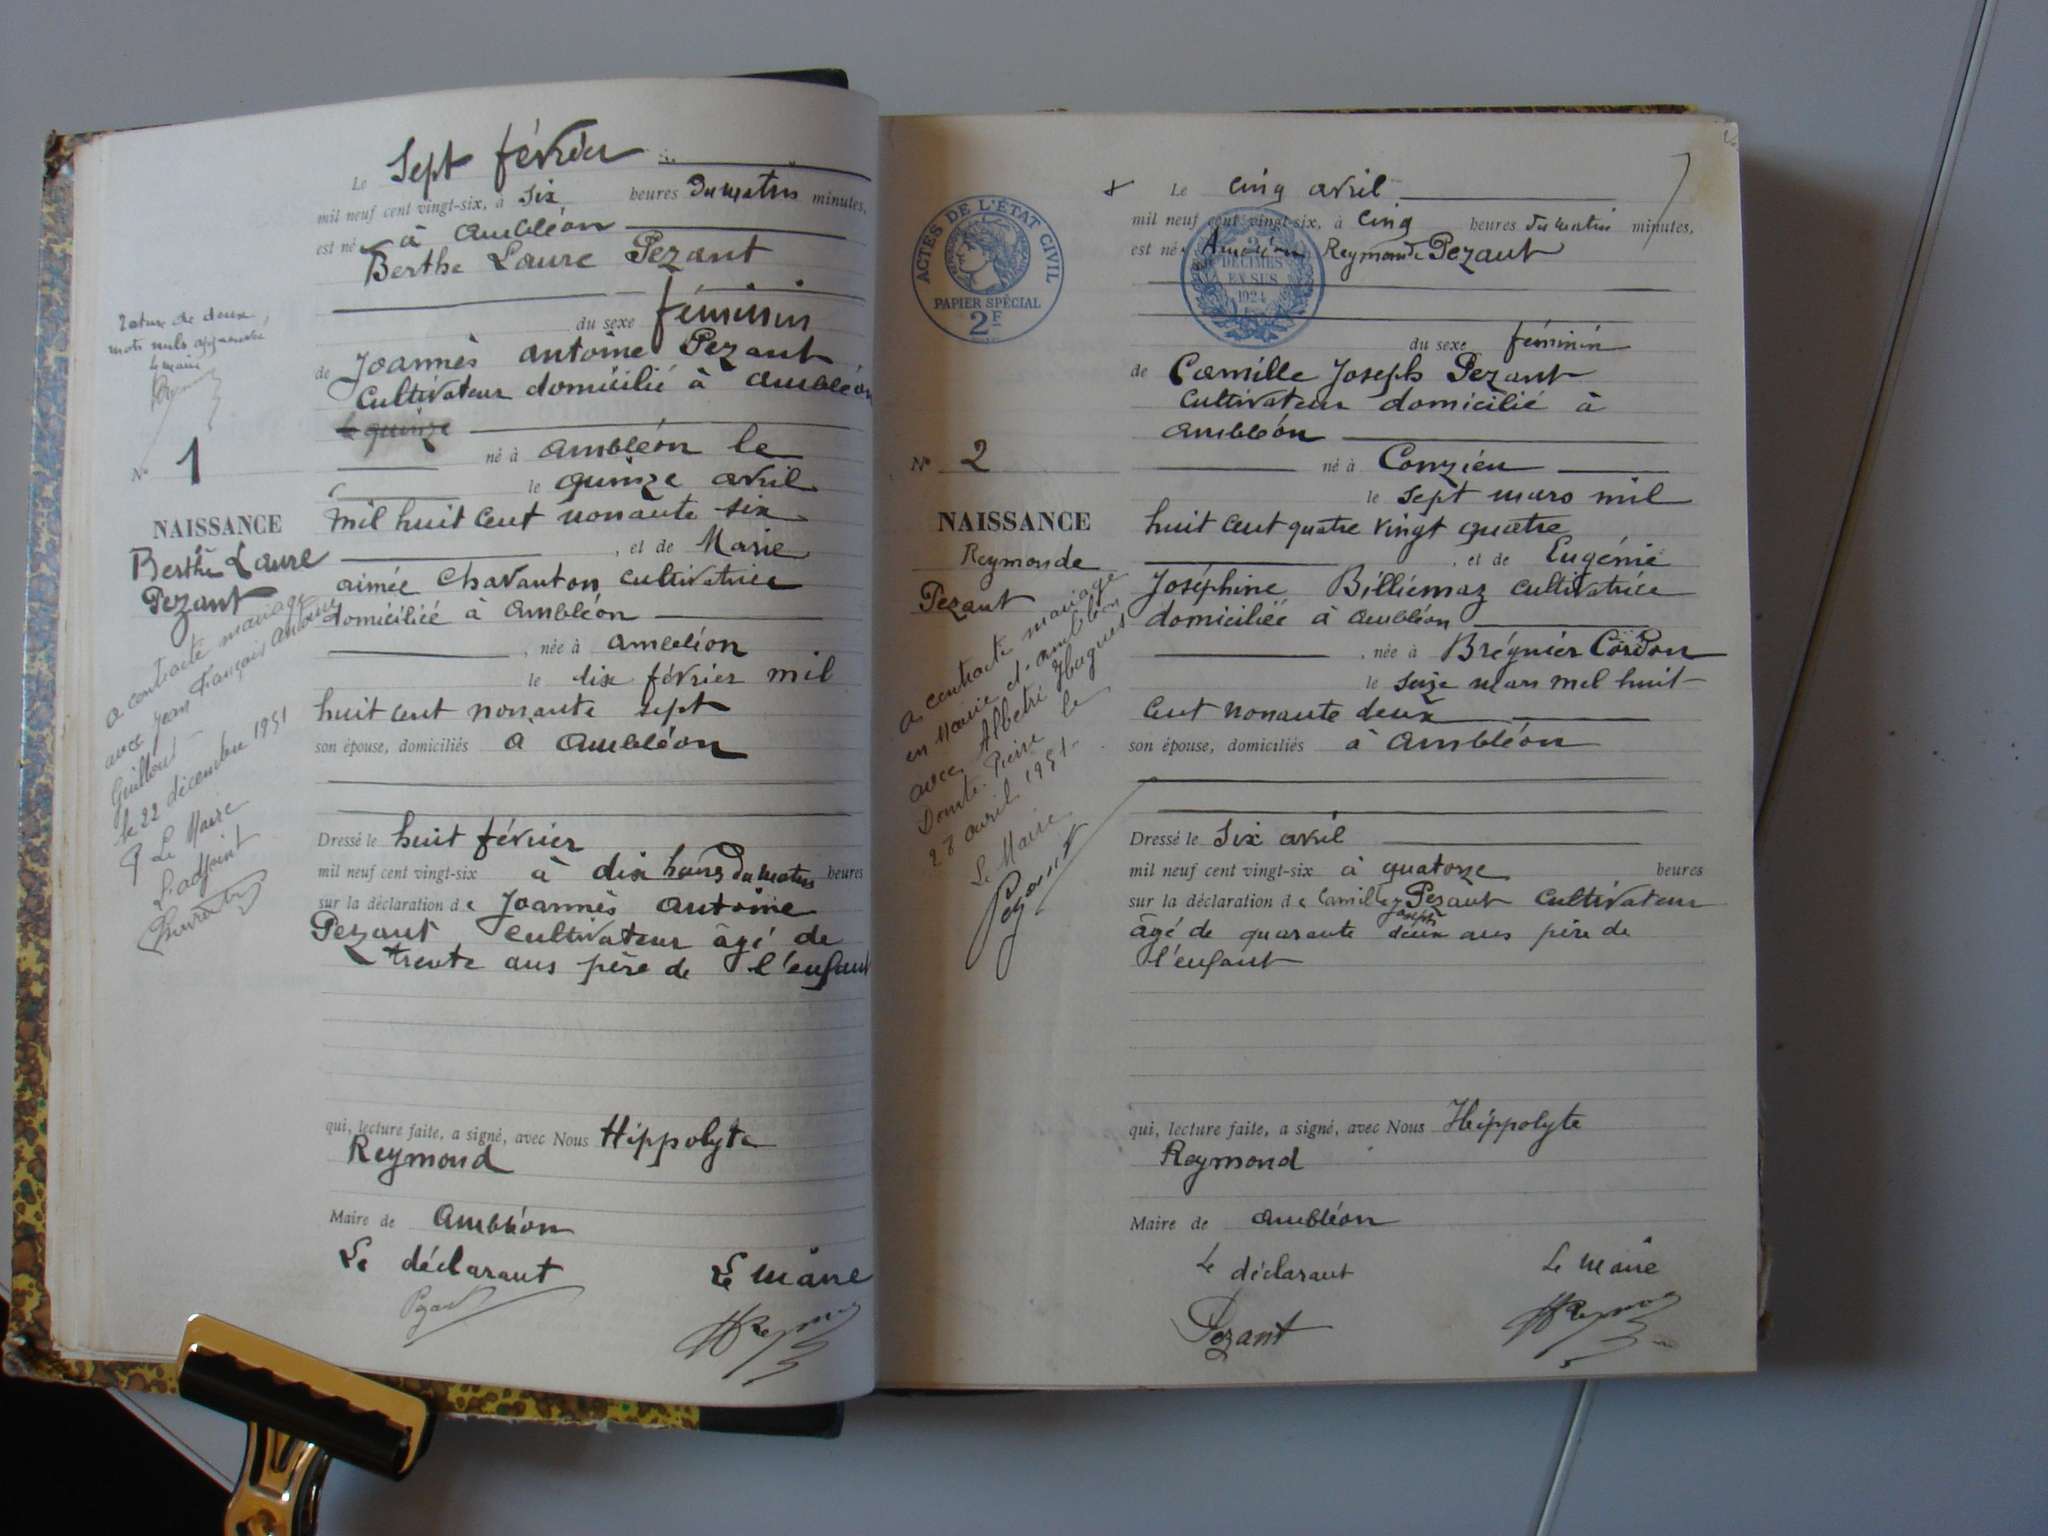 Le Sept février
mil neuf cent vingt-six, à Six heures du matin minutes,
est né à Ambléon
Berthe Laure Pezant
du sexe féminin
de Joannès Antoine Pezant
Cultivateur domicilié à Ambléon
le quinze
né à Ambléon le
le quinze avril
mil huit cent nonante six
, et de Marie
aimée Chavanton cultivatrice
domiciliée à Ambléon
, née à Ambléon
le dix février mil
huit cent nonante sept
son épouse, domiciliés à Ambléon
Dressé le huit février
mil neuf cent vingt-six à dix heures du matin heures
sur la déclaration de Joannès Antoine
Pezant cultivateur âgé de
trente ans père de l'enfant
qui, lecture faite, a signé, avec Nous Hippolyte
Reymond
Maire de Ambléon
Le déclarant Le Maire
Pezant HReymond
Rature de deux
mots nuls approuvée
le maire
No 1
NAISSANCE
Berthe Laure
Pezant
a contracté mariage
avec Jean François Antoine
Guillout
le 22 décembre 1951
Le Maire
L'adjoint
ACTES DE L'ÉTAT CIVIL
PAPIER SPÉCIAL
2F
2
DÉCIMES
EN SUS
1924
No 2
NAISSANCE
Reymonde
Pezant
a contracté mariage
en Mairie d'Ambléon
avec Albetri Hugues
Donte Pierre le
28 avril 1951
Le Maire
Pezant
Le cinq avril
mil neuf cent vingt-six, à Cinq heures du matin minutes,
est né Ambléon Reymonde Pezant
du sexe féminin
de Camille Joseph Pezant
Cultivateur domicilié à
Ambléon
né à Conzieu
le sept mars mil
huit cent quatre vingt quatre
, et de Eugénie
Joséphine Billiémaz cultivatrice
domiciliée à Ambléon
, née à Brégnier Cordon
le seize mars mil huit
cent nonante deux
son épouse, domiciliés à Ambléon
Dressé le Six avril
mil neuf cent vingt-six à quatorze heures
sur la déclaration de Camille Pezant Cultivateur
Joseph
âgé de quarante deux ans père de
l'enfant
qui, lecture faite, a signé, avec Nous Hippolyte
Reymond
Maire de Ambléon
Le déclarant Le Maire
Pezant HReymond